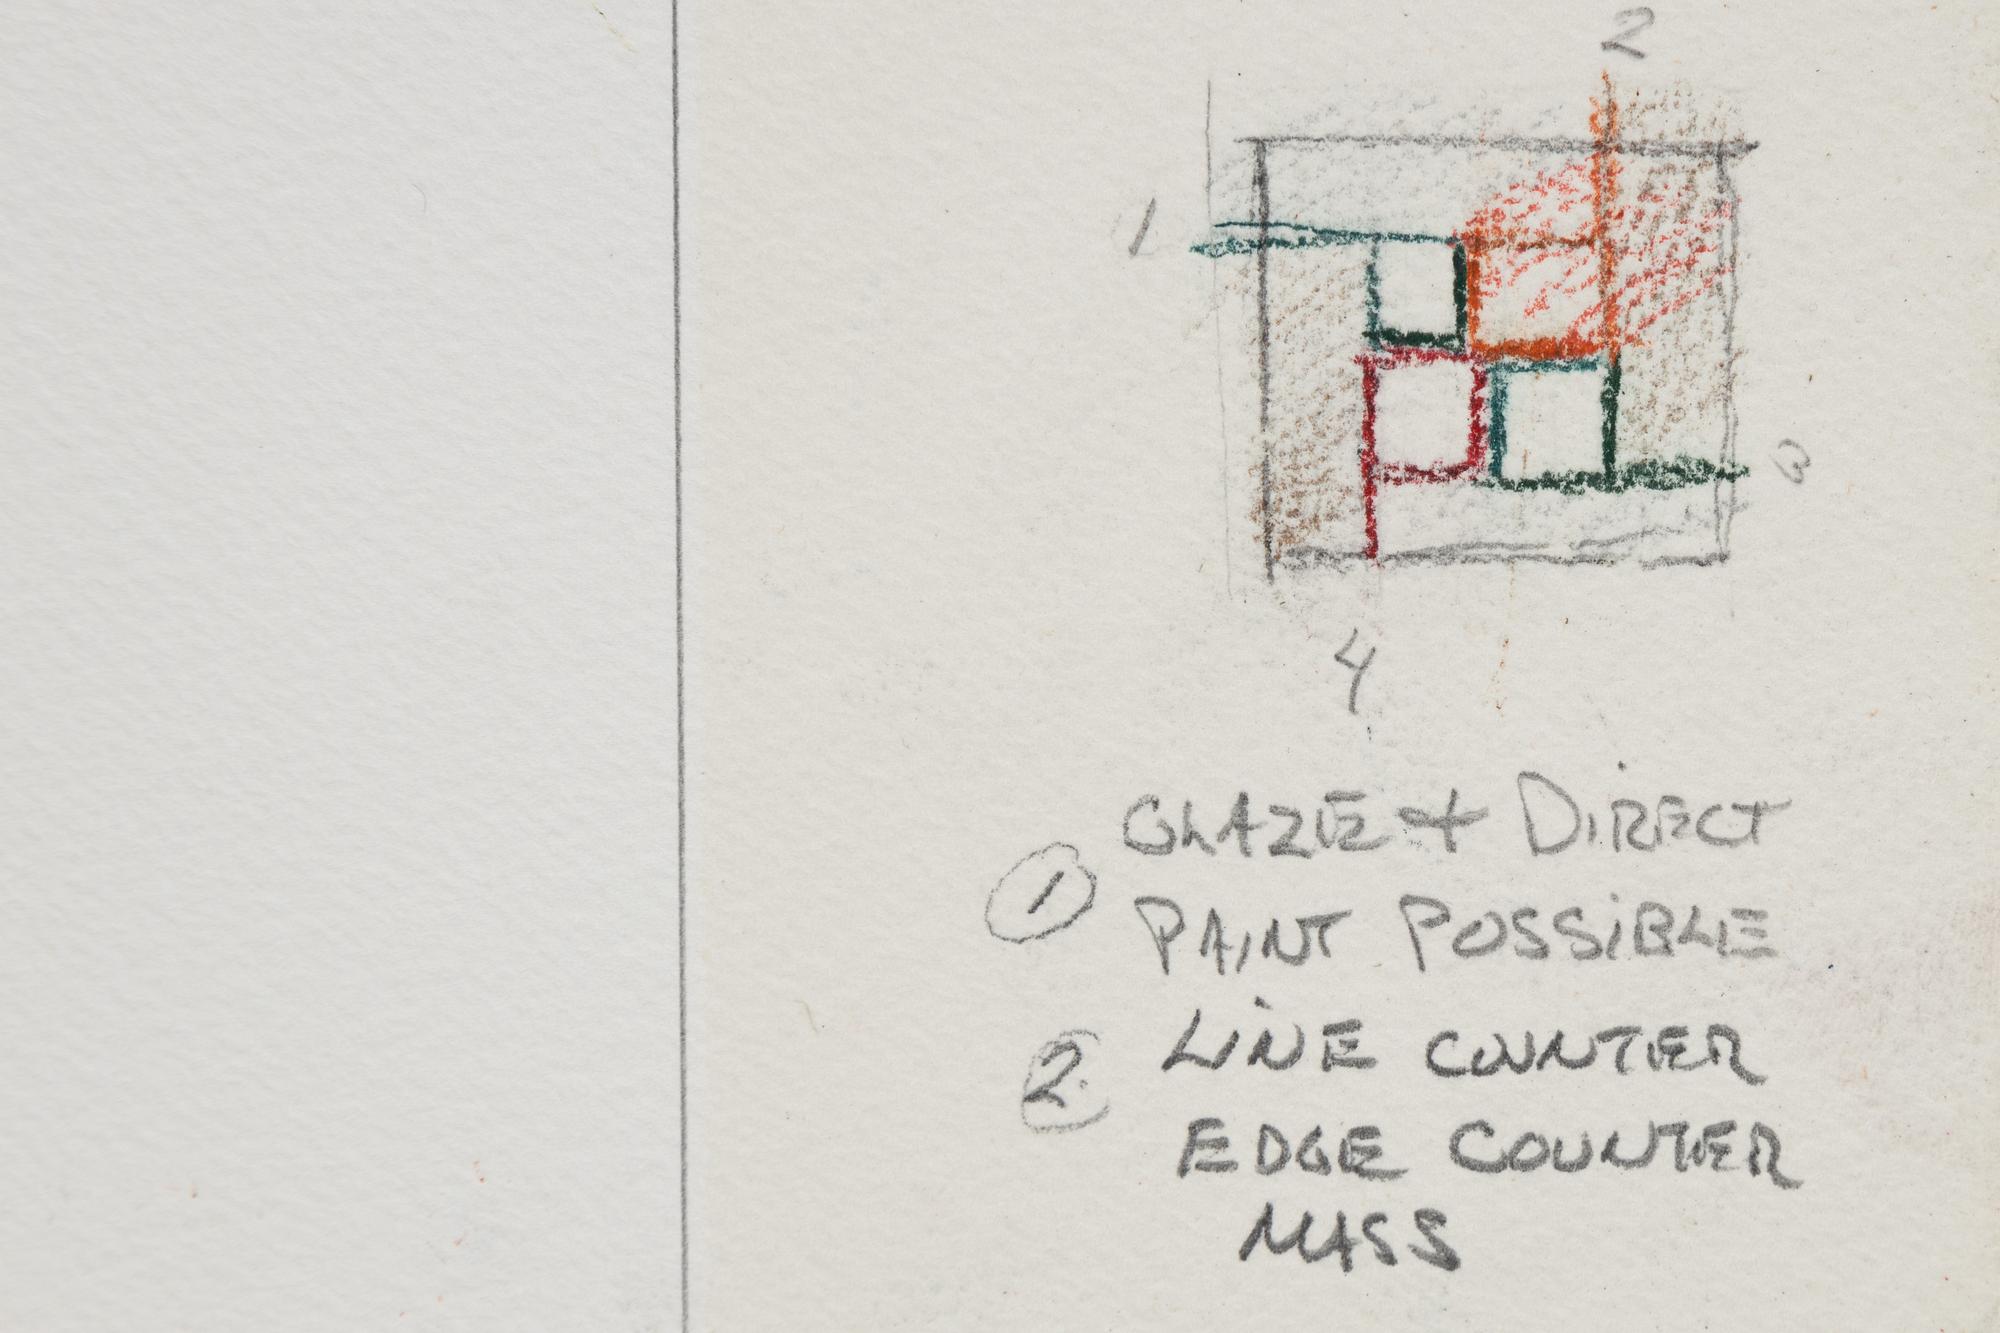 2
1
3
4
GLAZE + DIRECT
① PAINT POSSIBLE
② LINE COUNTER
EDGE COUNTER
MASS